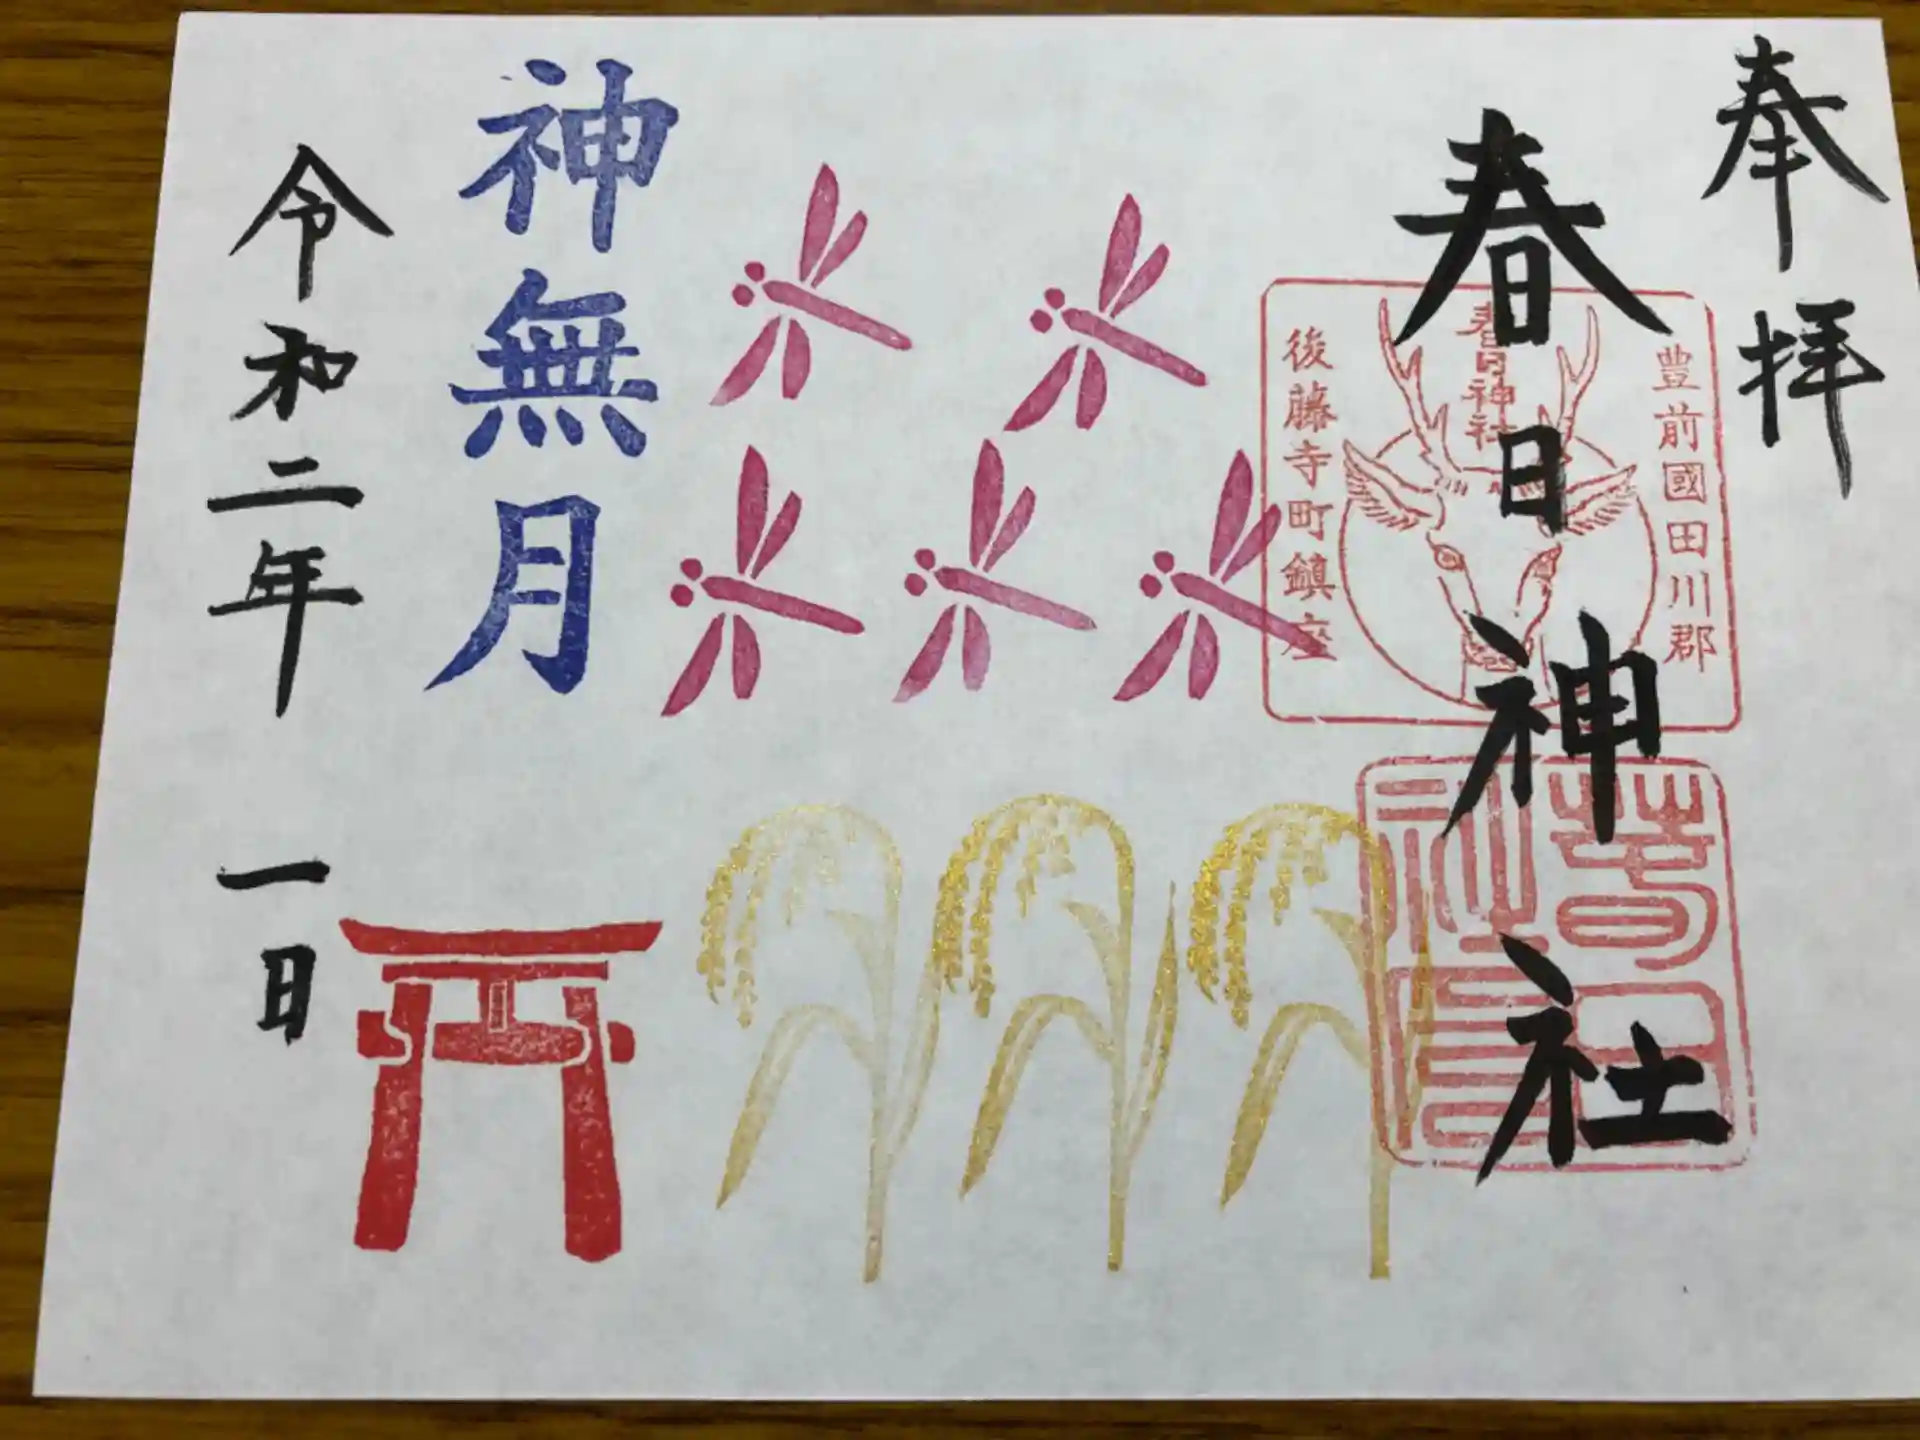 奉拝
春日神社
豊前國田川郡
春日神社
後藤寺町鎮座
神無月
令和二年
一日